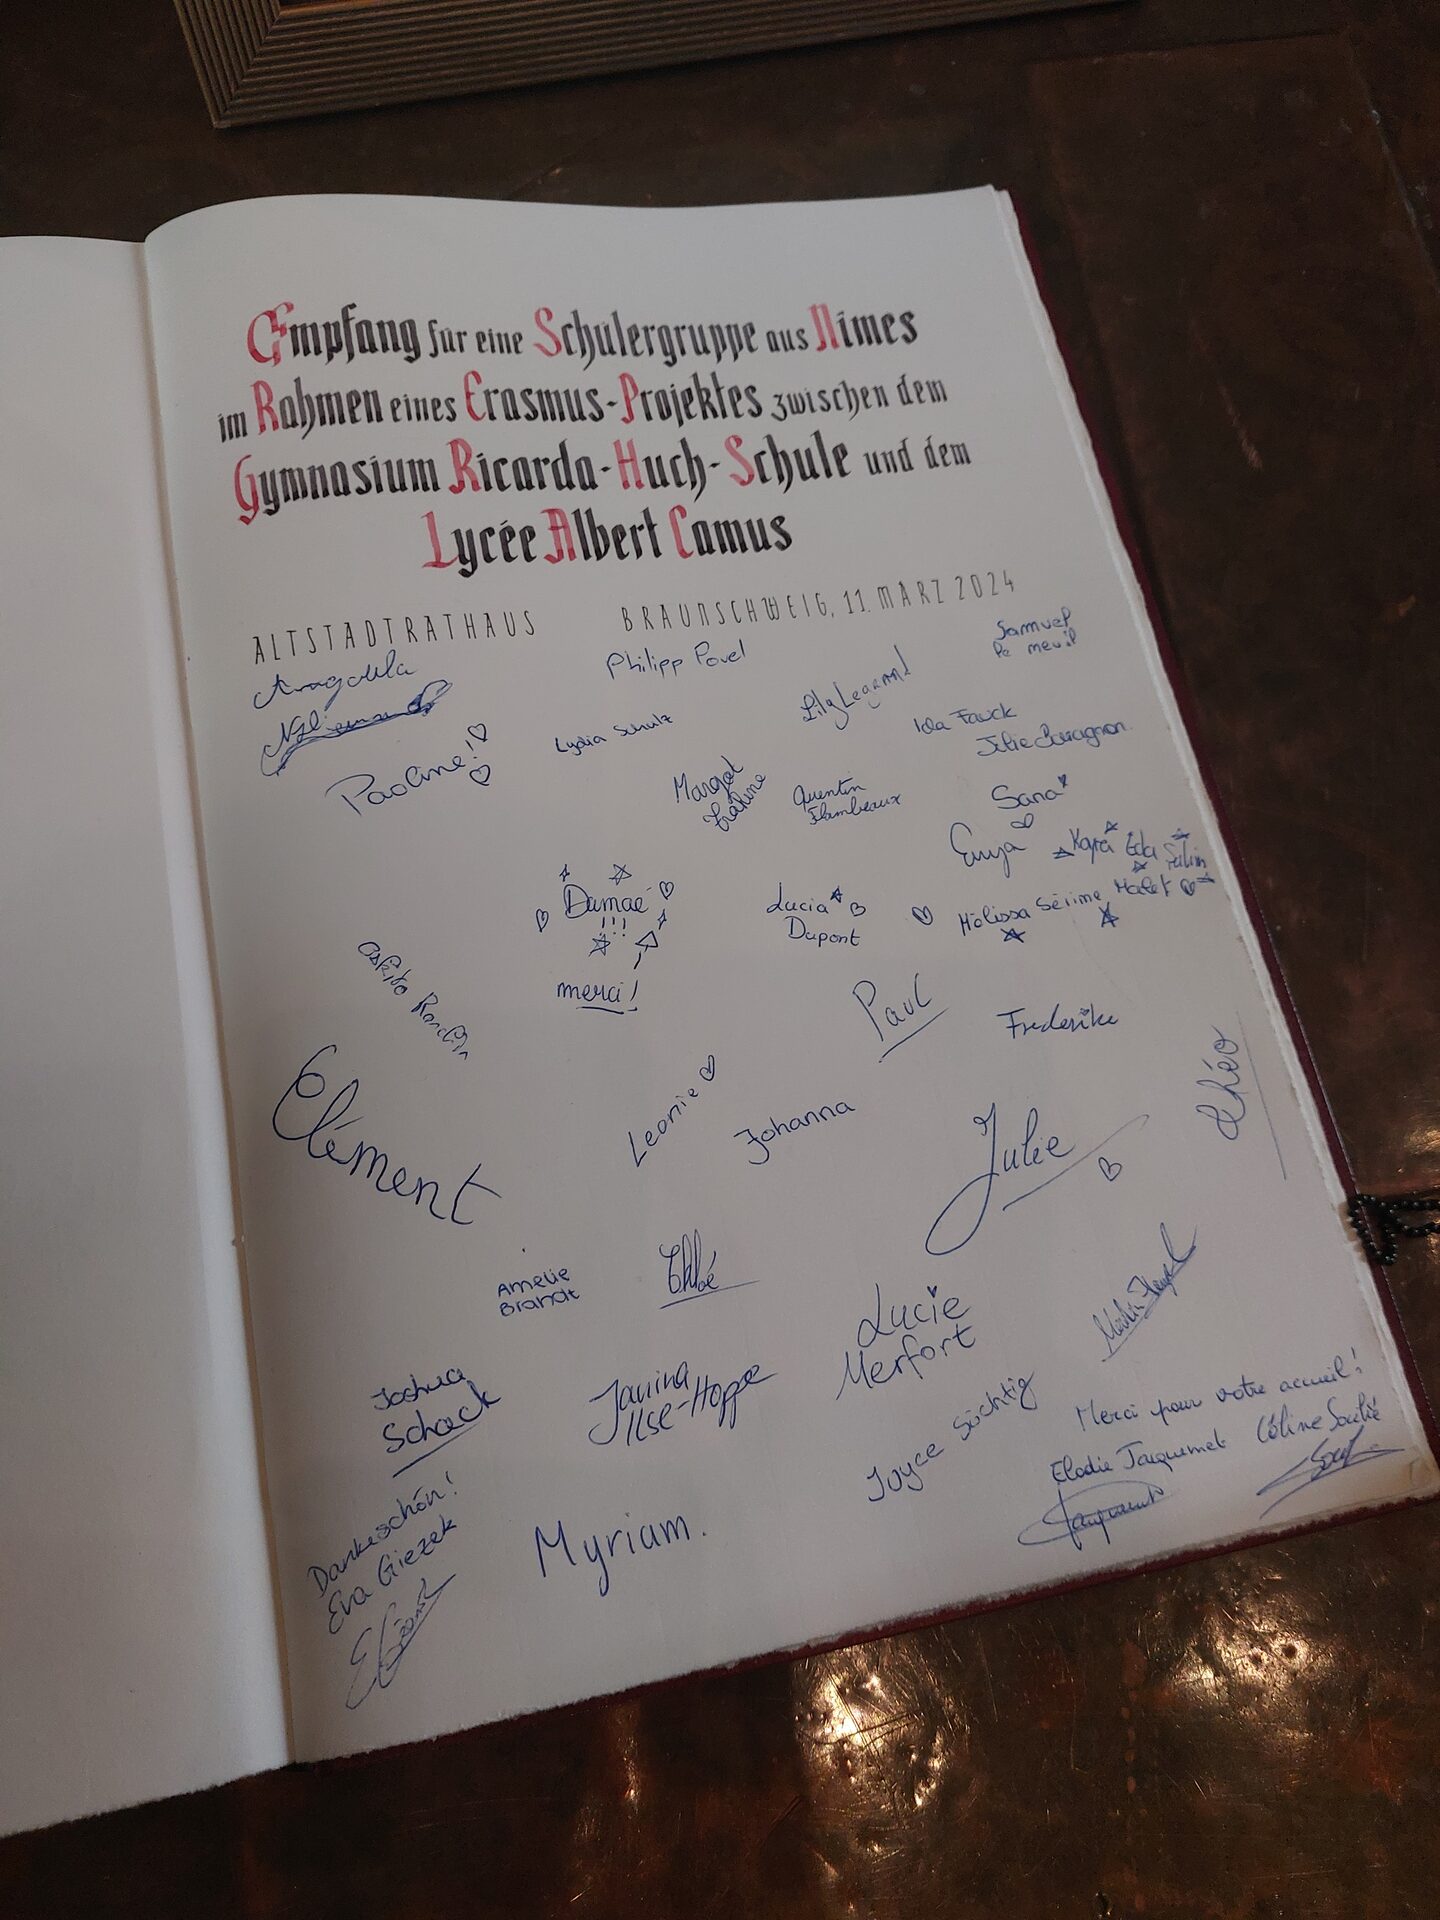 Empfang für eine Schülergruppe aus Nîmes
im Rahmen eines Erasmus-Projektes zwischen dem
Gymnasium Ricarda-Huch-Schule und dem
Lycée Albert Camus
ALTSTADTRATHAUS BRAUNSCHWEIG, 11. MÄRZ 2024
Samuel
Philipp Pavel
Lily Legrand
Lydia Schulz
Ida Fauck
Julie Bouragnon
Paoline!
Margot
Quentin
Flambeaux
Sana
Enya
Kaya Eda Selin
Damaé
!!!
merci!
Lucia
Dupont
Mélissa Sérine Malek
Paul
Frederike
Clément
Leonie
Johanna
Julie
Théo
Amelie
Brandt
Chloé
Lucie
Merfort
Joshua
Schack
Janina
Ilse-Hoppe
Joyce Süchtig
Merci pour votre accueil!
Elodie Jacquemet Céline Soulié
Dankeschön!
Eva Giezek
Myriam.